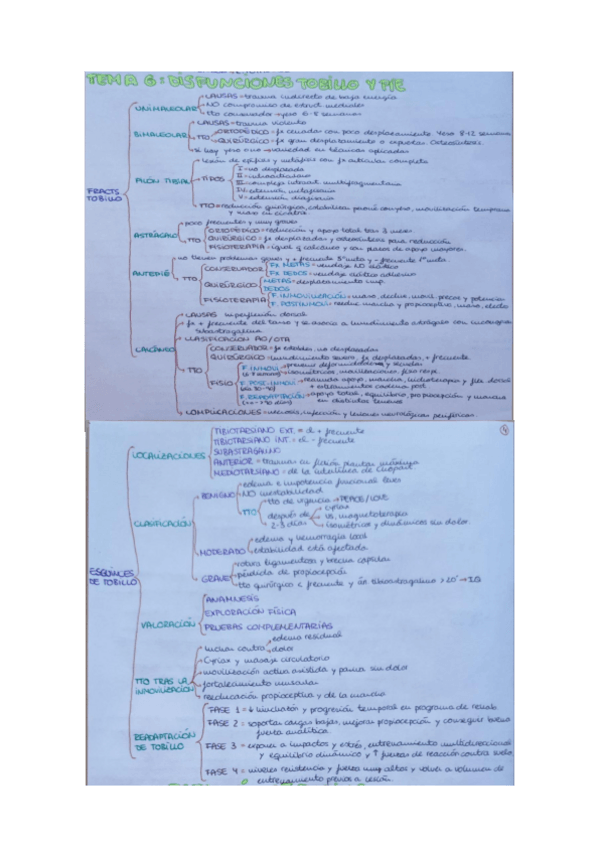 TEMA 6: DISFUNCIONES TOBILLO Y PIE
FRACTS TOBILLO
UNIMALEOLAR
CAUSAS = trauma indirecto de baja energía
NO compromiso de estruct. mediales
tto conservador → yeso 6-8 semanas
BIMALEOLAR
CAUSAS = trauma violento
TTO
ORTOPÉDICO = fx cerradas con poco desplazamiento. Yeso 8-12 semanas
QUIRÚRGICO = fx gran desplazamiento o expuestas. Osteosíntesis
si hay yeso = variedad en técnicas aplicadas
PILÓN TIBIAL
lesión de epífisis y metáfisis con fx articular completa
TIPOS
I = no desplazada
II =
III = compleja intraart. multifragmentaria
IV = extensión metafisaria
V = extensión diafisaria
TTO = reducción quirúrgica, estabilizar peroné complejo, movilización temprana
y masaje en cicatriz
ASTRÁGALO
poco frecuentes y muy graves
TTO
ORTOPÉDICO = reducción y apoyo total tras 3 meses
QUIRÚRGICO = fx desplazadas y osteosíntesis para reducción
FISIOTERAPIA = igual q calcáneo y con plazos de apoyo mayores
ANTEPIÉ
no tienen problemas graves y + frecuente 5º meta y - frecuente 1º meta
TTO
CONSERVADOR
FX METAS = vendaje NO elástico
FX DEDOS = vendaje elástico adhesivo
QUIRÚRGICO
METAS = desplazamiento imp.
DEDOS
FISIOTERAPIA
F. INMOVILIZACIÓN = masaje, declive, movil. precoz y potenciar
F. POSTINMOVI = reeduc marcha y propioceptiva, masaje, electro
CALCÁNEO
CAUSAS
fx + frecuente del tarso y se asocia a hundimiento astrágalo con
subastragalina
CLASIFICACIÓN AO/OTA
TTO
CONSERVADOR = fx estables, no desplazadas
QUIRÚRGICO = hundimiento severo, fx desplazadas, + frecuente
FISIO
F. INMOVI = prevenir deformidades y secuelas
isométricos, movilizaciones, fisio resp.
F. POST-INMOVI = reeducar apoyo, marcha, hidroterapia y flex dorsal
+ estiramientos cadena post
F. READAPTACIÓN = apoyo total, equilibrio, propiocepción y marcha
en distintos terrenos
COMPLICACIONES = necrosis, infección y lesiones neurológicas periféricas
ESGUINCES DE TOBILLO
LOCALIZACIONES
TIBIOTARSIANO EXT. = el + frecuente
TIBIOTARSIANO INT. = el - frecuente
SUBASTRAGALINO
ANTERIOR = traumas en flexión plantar máxima
MEDIOTARSIANO = de la interlínea de Chopart
CLASIFICACIÓN
BENIGNO
edema e impotencia funcional leves
NO inestabilidad
TTO
tto de urgencia → PEACE/LOVE
después de 2-3 días
cyriax
US, magnetoterapia
isométricos y dinámicos sin dolor
MODERADO
edema y hemorragia local
estabilidad está afectada
GRAVE
rotura ligamentosa y brecha capsular
pérdida de propiocepción
tto quirúrgico
VALORACIÓN
ANAMNESIS
EXPLORACIÓN FÍSICA
PRUEBAS COMPLEMENTARIAS
TTO TRAS LA INMOVILIZACIÓN
luchar contra
edema residual
dolor
Cyriax y masaje circulatorio
movilización activa asistida y pasiva sin dolor
fortalecimiento muscular
reeducación propioceptiva y de la marcha
READAPTACIÓN DE TOBILLO
FASE 1 = ↓ hinchazón y progresión temporal en programa de rehab
FASE 2 = soportar cargas bajas, mejorar propiocepción y conseguir buena
fuerza analítica
FASE 3 = exponer a impactos y estrés, entrenamiento multidireccional
y equilibrio dinámico y ↑ fuerzas de reacción contra suelo
FASE 4 = niveles resistencia y fuerza muy altos y volver a volumen de
entrenamiento previos a lesión.